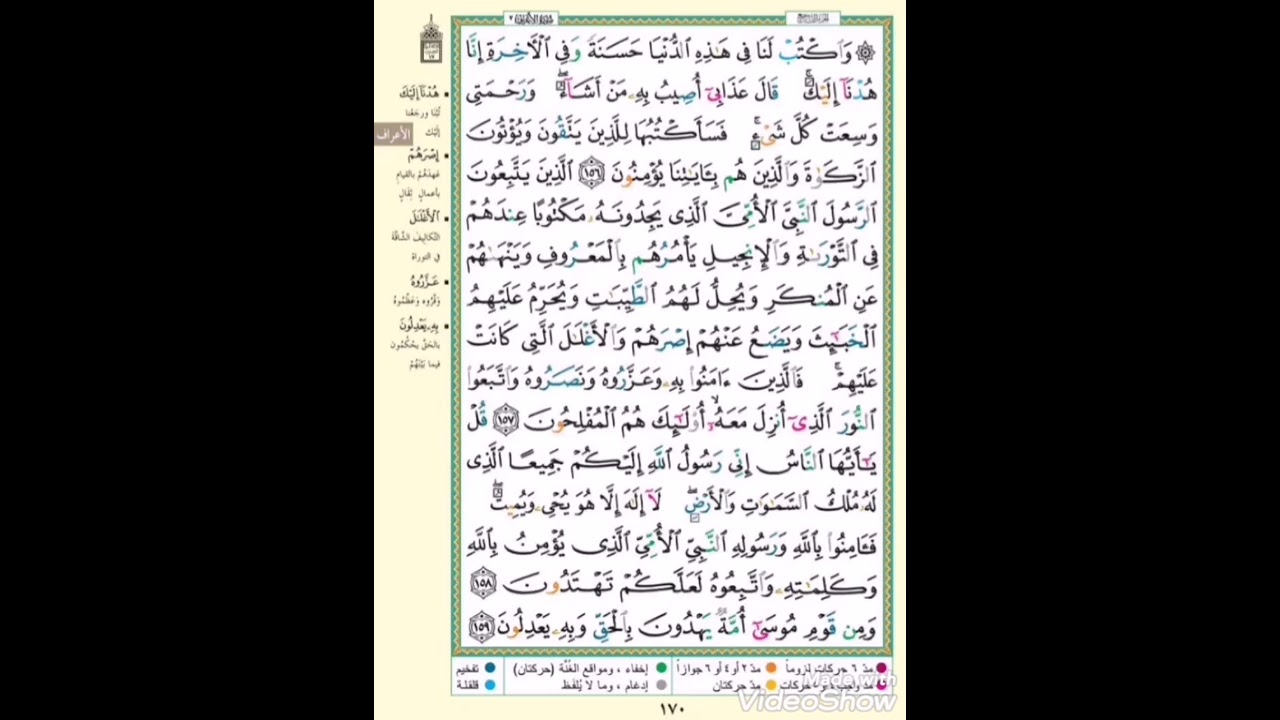 سورة الأعراف ٧
الجزء التاسع
۞ وَٱكۡتُبۡ لَنَا فِي هَٰذِهِ ٱلدُّنۡيَا حَسَنَةٗ وَفِي ٱلۡأٓخِرَةِ إِنَّا
هُدۡنَآ إِلَيۡكَۚ قَالَ عَذَابِيٓ أُصِيبُ بِهِۦ مَنۡ أَشَآءُۖ وَرَحۡمَتِي
وَسِعَتۡ كُلَّ شَيۡءٖۚ فَسَأَكۡتُبُهَا لِلَّذِينَ يَتَّقُونَ وَيُؤۡتُونَ
ٱلزَّكَوٰةَ وَٱلَّذِينَ هُم بِـَٔايَٰتِنَا يُؤۡمِنُونَ ١٥٦ ٱلَّذِينَ يَتَّبِعُونَ
ٱلرَّسُولَ ٱلنَّبِيَّ ٱلۡأُمِّيَّ ٱلَّذِي يَجِدُونَهُۥ مَكۡتُوبًا عِندَهُمۡ
فِي ٱلتَّوۡرَىٰةِ وَٱلۡإِنجِيلِ يَأۡمُرُهُم بِٱلۡمَعۡرُوفِ وَيَنۡهَىٰهُمۡ
عَنِ ٱلۡمُنكَرِ وَيُحِلُّ لَهُمُ ٱلطَّيِّبَٰتِ وَيُحَرِّمُ عَلَيۡهِمُ
ٱلۡخَبَٰٓئِثَ وَيَضَعُ عَنۡهُمۡ إِصۡرَهُمۡ وَٱلۡأَغۡلَٰلَ ٱلَّتِي كَانَتۡ
عَلَيۡهِمۡۚ فَٱلَّذِينَ ءَامَنُواْ بِهِۦ وَعَزَّرُوهُ وَنَصَرُوهُ وَٱتَّبَعُواْ
ٱلنُّورَ ٱلَّذِيٓ أُنزِلَ مَعَهُۥٓۙ أُوْلَٰٓئِكَ هُمُ ٱلۡمُفۡلِحُونَ ١٥٧ قُلۡ
يَٰٓأَيُّهَا ٱلنَّاسُ إِنِّي رَسُولُ ٱللَّهِ إِلَيۡكُمۡ جَمِيعًا ٱلَّذِي
لَهُۥ مُلۡكُ ٱلسَّمَٰوَٰتِ وَٱلۡأَرۡضِۖ لَآ إِلَٰهَ إِلَّا هُوَ يُحۡيِۦ وَيُمِيتُۖ
فَـَٔامِنُواْ بِٱللَّهِ وَرَسُولِهِ ٱلنَّبِيِّ ٱلۡأُمِّيِّ ٱلَّذِي يُؤۡمِنُ بِٱللَّهِ
وَكَلِمَٰتِهِۦ وَٱتَّبِعُوهُ لَعَلَّكُمۡ تَهۡتَدُونَ ١٥٨
وَمِن قَوۡمِ مُوسَىٰٓ أُمَّةٞ يَهۡدُونَ بِٱلۡحَقِّ وَبِهِۦ يَعۡدِلُونَ ١٥٩
هُدۡنَآ إِلَيۡكَ
تُبْنَا ورجَعْنا
إليْك
الأعراف
إِصۡرَهُمۡ
عَهدَهُمْ بالقيام
بأعمالٍ ثِقالٍ
ٱلۡأَغۡلَٰلَ
التَّكاليفَ الشَّاقَّة
في التوراة
عَزَّرُوهُ
وَقَّرُوه وَعَظَّمُوهُ
بِهِۦ يَعۡدِلُونَ
بالحَقّ يحْكُمون
فيما بَيْنَهُمْ
مدّ ٦ حركات لزوماً مدّ ٢ أو ٤ أو ٦ جوازاً إخفاء ، ومواقع الغُنَّة (حركتان) تفخيم
مدّ واجب ٤ أو ٥ حركات مدّ حركتان إدغام ، وما لا يُلفَظ قلقلة
Made with
VideoShow
١٧٠